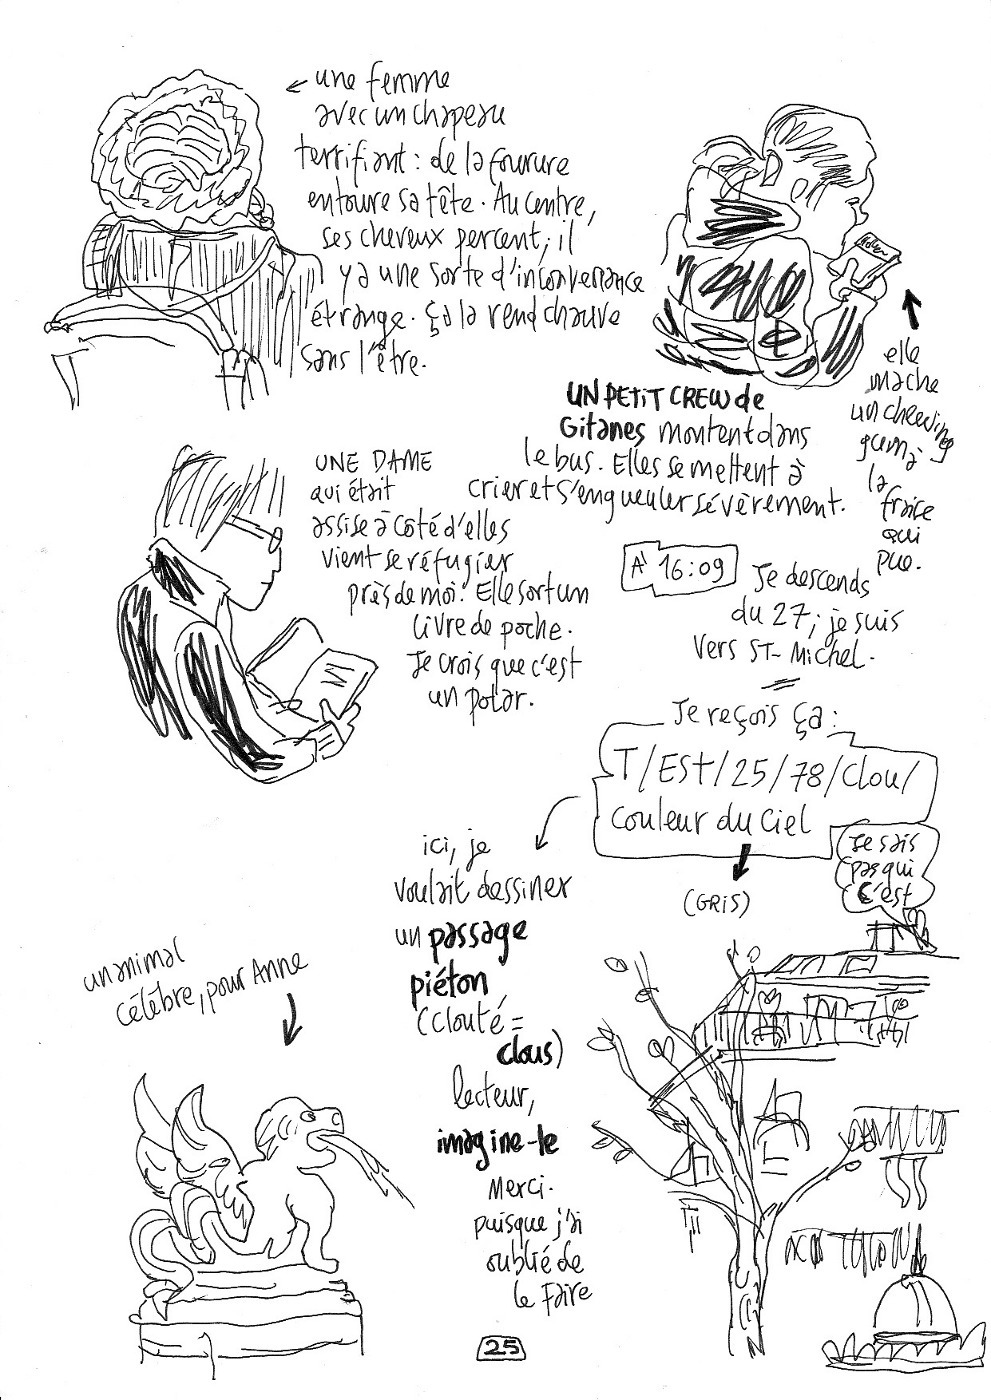 une femme
avec un chapeau
terrifiant : de la fourure
entoure sa tête. Au centre,
ses cheveux percent, il
y a une sorte d'inconvenance
étrange. ça la rend chauve
sans l'être.
elle
mache
un chewing
gum à
la
fraise
qui
pue.
UN PETIT CREW de
Gitanes montent dans
le bus. Elles se mettent à
crier et s'engueuler sévèrement.
UNE DAME
qui était
assise à côté d'elles
vient se réfugier
près de moi. Elle sort un
livre de poche.
Je crois que c'est
un polar.
À 16:09
Je descends
du 27, je suis
vers ST-Michel.
Je reçois ça :
T/Est/25/78/Clou/
couleur du ciel
(GRIS)
Je sais
pas qui
c'est
ici, je
voulait dessiner
un passage
piéton
(clouté =
clous)
lecteur,
imagine-le
Merci.
puisque j'ai
oublié de
le faire
un animal
célèbre, pour Anne
25